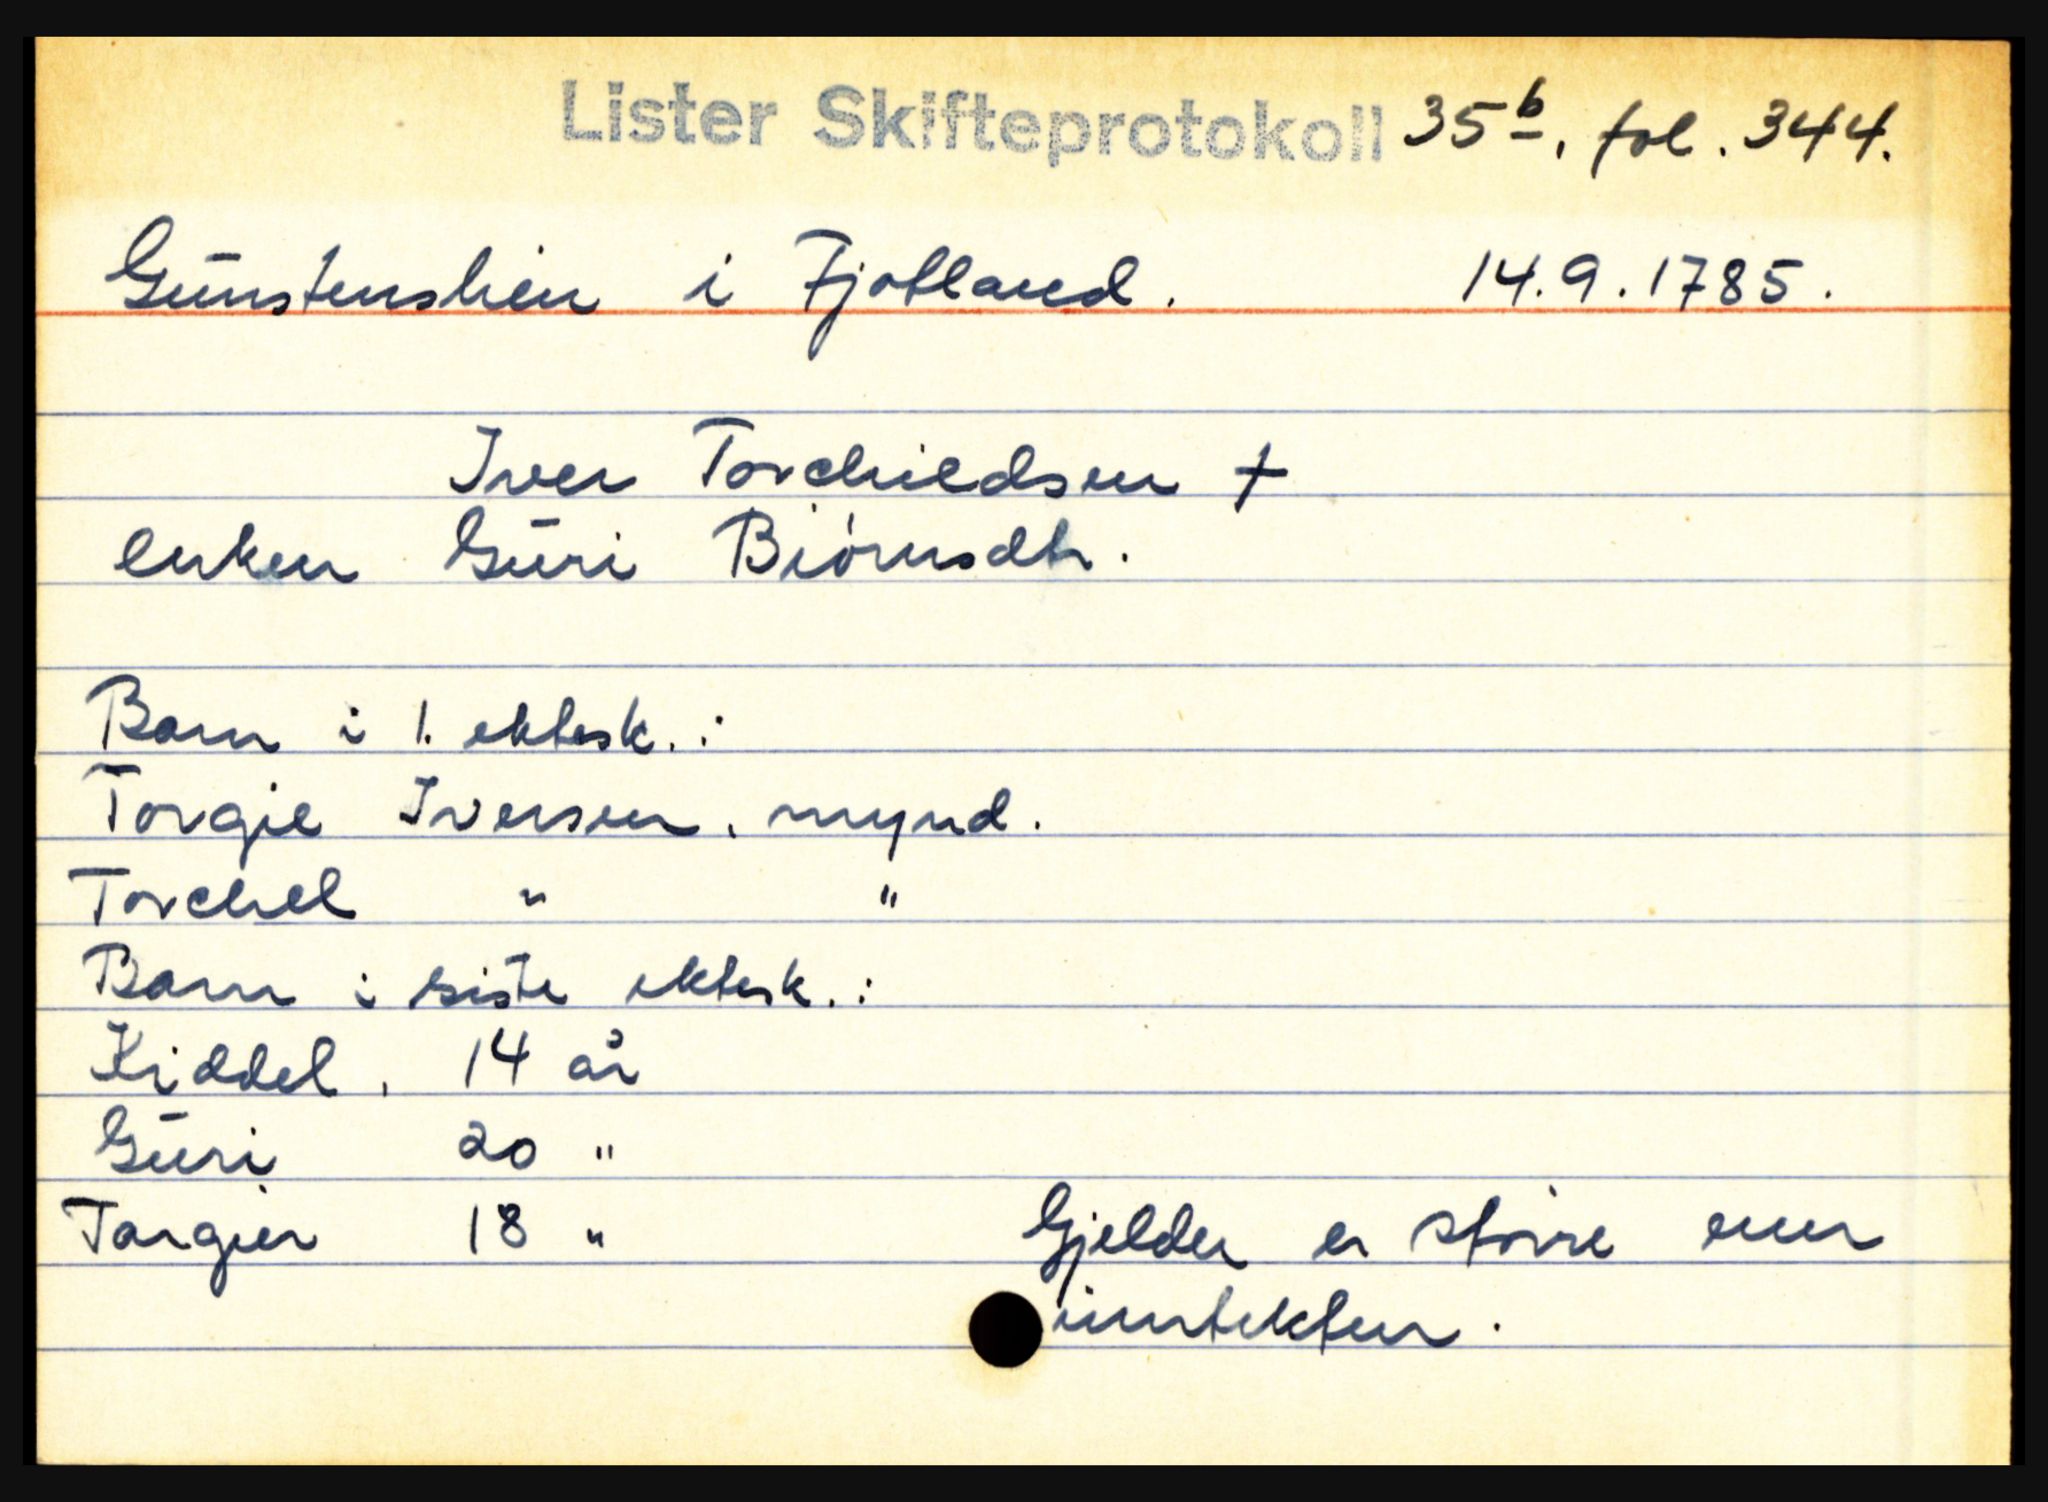 Lister Skifteprotokoll 35b, fol. 344.
Gunstenslien i Fjotland. 14.9.1785.
Iver Torchildsen †
enken Guri Biörnsdtr.
Barn i 1. ektesk.:
Torgie Iversen, mynd.
Torchel " "
Barn i siste ektesk.:
Kiddel, 14 år
Guri 20 "
Torgier 18 "
Gjelden er större enn
inntekten.